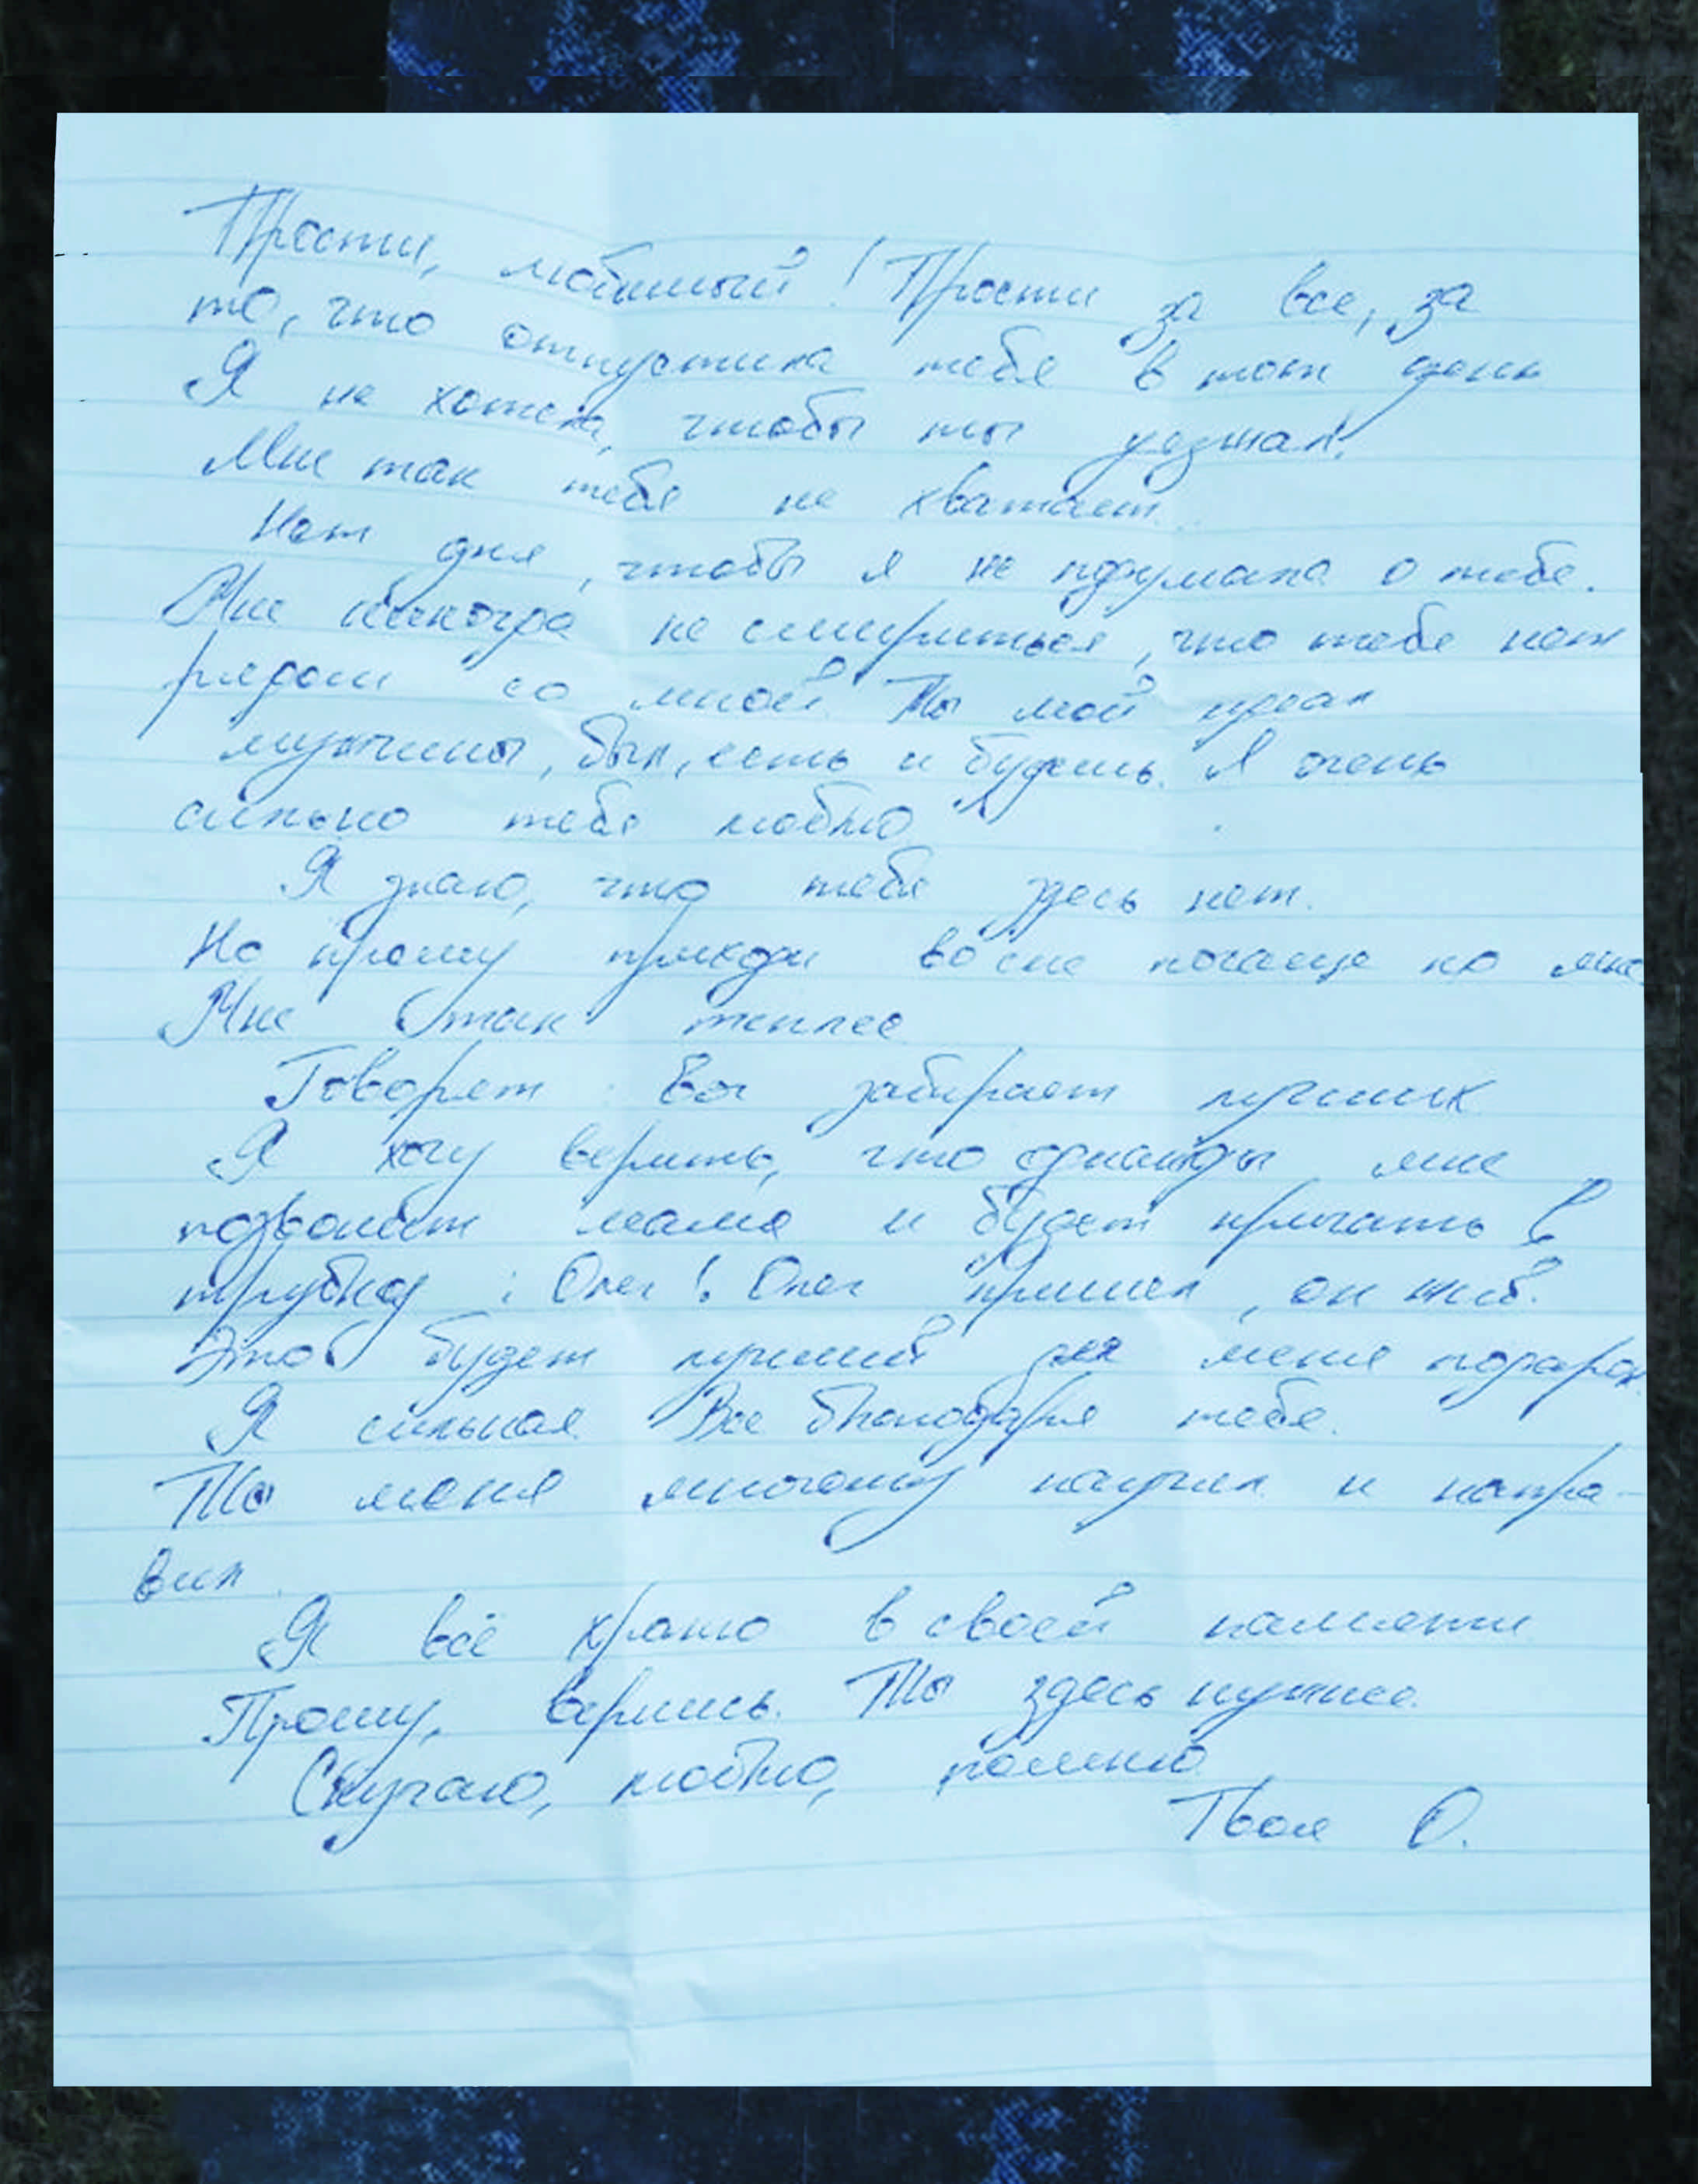 Прости, любимый! Прости за все, за
то, что отпустила тебя в тот день
Я не хотела, чтобы ты уезжал!
Мне так тебя не хватает...
Нет дня, чтобы я не подумала о тебе.
Мне никогда не смириться, что тебя нет
рядом со мной. Ты мой идеал
мужчины, был, есть и будешь. Я очень
сильно тебя люблю
Я знаю, что тебя здесь нет.
Но прошу приходи во сне почаще ко мне
Мне так теплее
Говорят: Бог забирает лучших
Я хочу верить, что однажды мне
позвонит мама и будет кричать в
трубку: Олег! Олег пришел, он жив.
Это будет лучший для меня подарок
Я сильная. Все благодаря тебе.
Ты меня многому научил и напра-
вил.
Я всё храню в своей памяти
Прошу, вернись. Ты здесь нужнее.
Скучаю, люблю, помню
Твоя О.